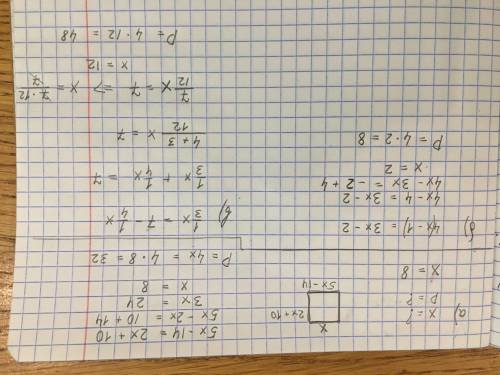 а) x = ?
P = ?
x
2x+10
5x-14
x = 8
5x-14 = 2x+10
5x-2x = 10+14
3x = 24
x = 8
P = 4x = 4·8 = 32
б) 4(x-1) = 3x-2
4x-4 = 3x-2
4x-3x = -2+4
x = 2
P = 4·2 = 8
в) 1/3 x = 7 - 1/4 x
1/3 x + 1/4 x = 7
4+3/12 x = 7
7/12 x = 7 => x = 7·12/7
x = 12
P = 4·12 = 48